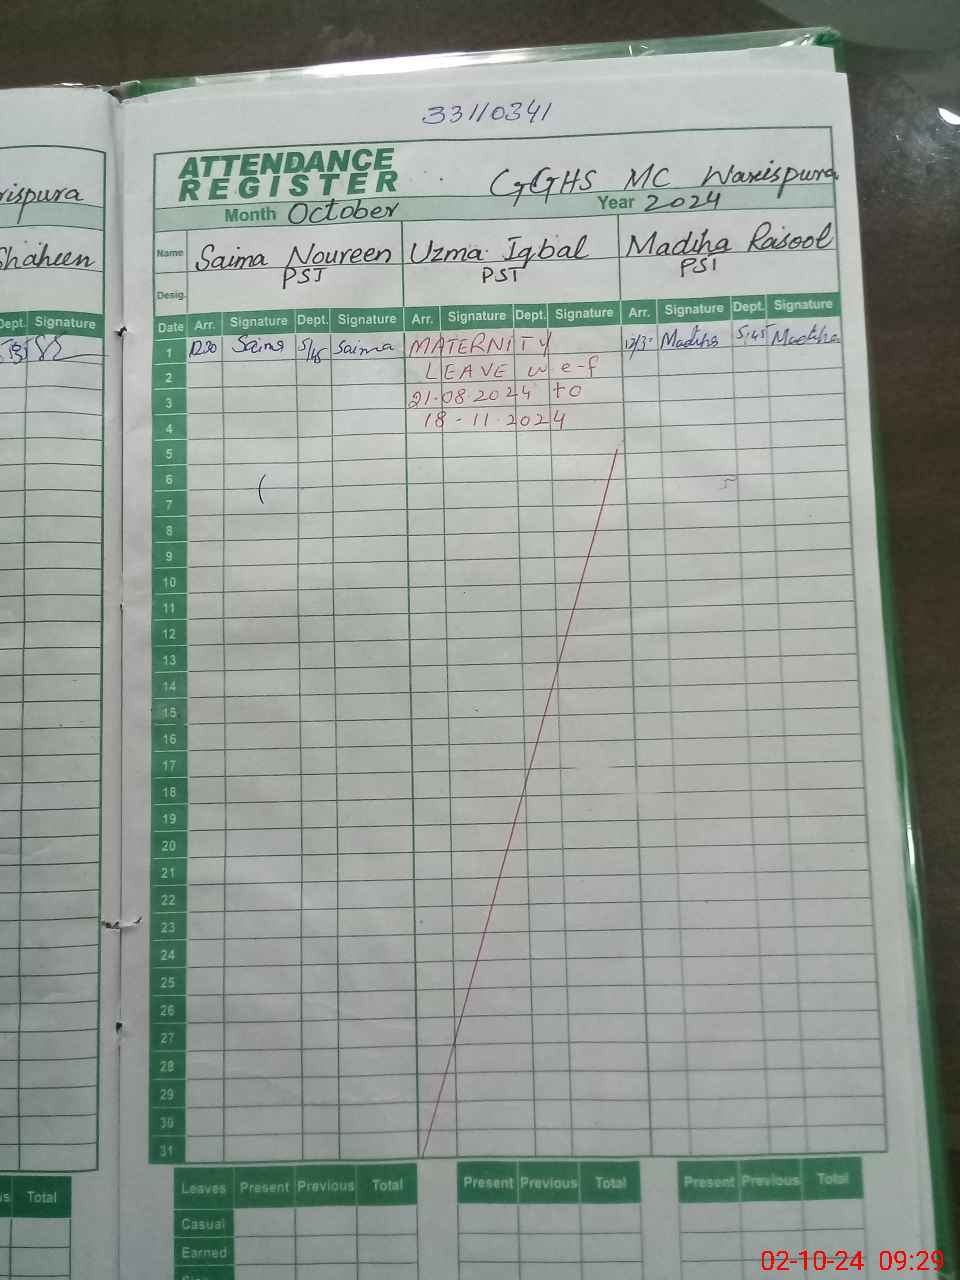 33110341
ATTENDANCE
REGISTER
GGHS MC Warispura
Month October
Year 2024
rispura
Shaheen
Name
Saima Noureen
Uzma Iqbal
Madiha Rasool
Desig.
PST
PST
PST
Dept. Signature
Date Arr. Signature Dept. Signature Arr. Signature Dept. Signature Arr. Signature Dept. Signature
1 12:30 Saima 5/45 Saima MATERNITY Madiha 5:45 Madiha
2 LEAVE w.e-f
3 21.08.2024 to
4 18-11.2024
5
6
7
8
9
10
11
12
13
14
15
16
17
18
19
20
21
22
23
24
25
26
27
28
29
30
31
Total
Leaves Present Previous Total Present Previous Total Present Previous Total
Casual
Earned
02-10-24 09:29